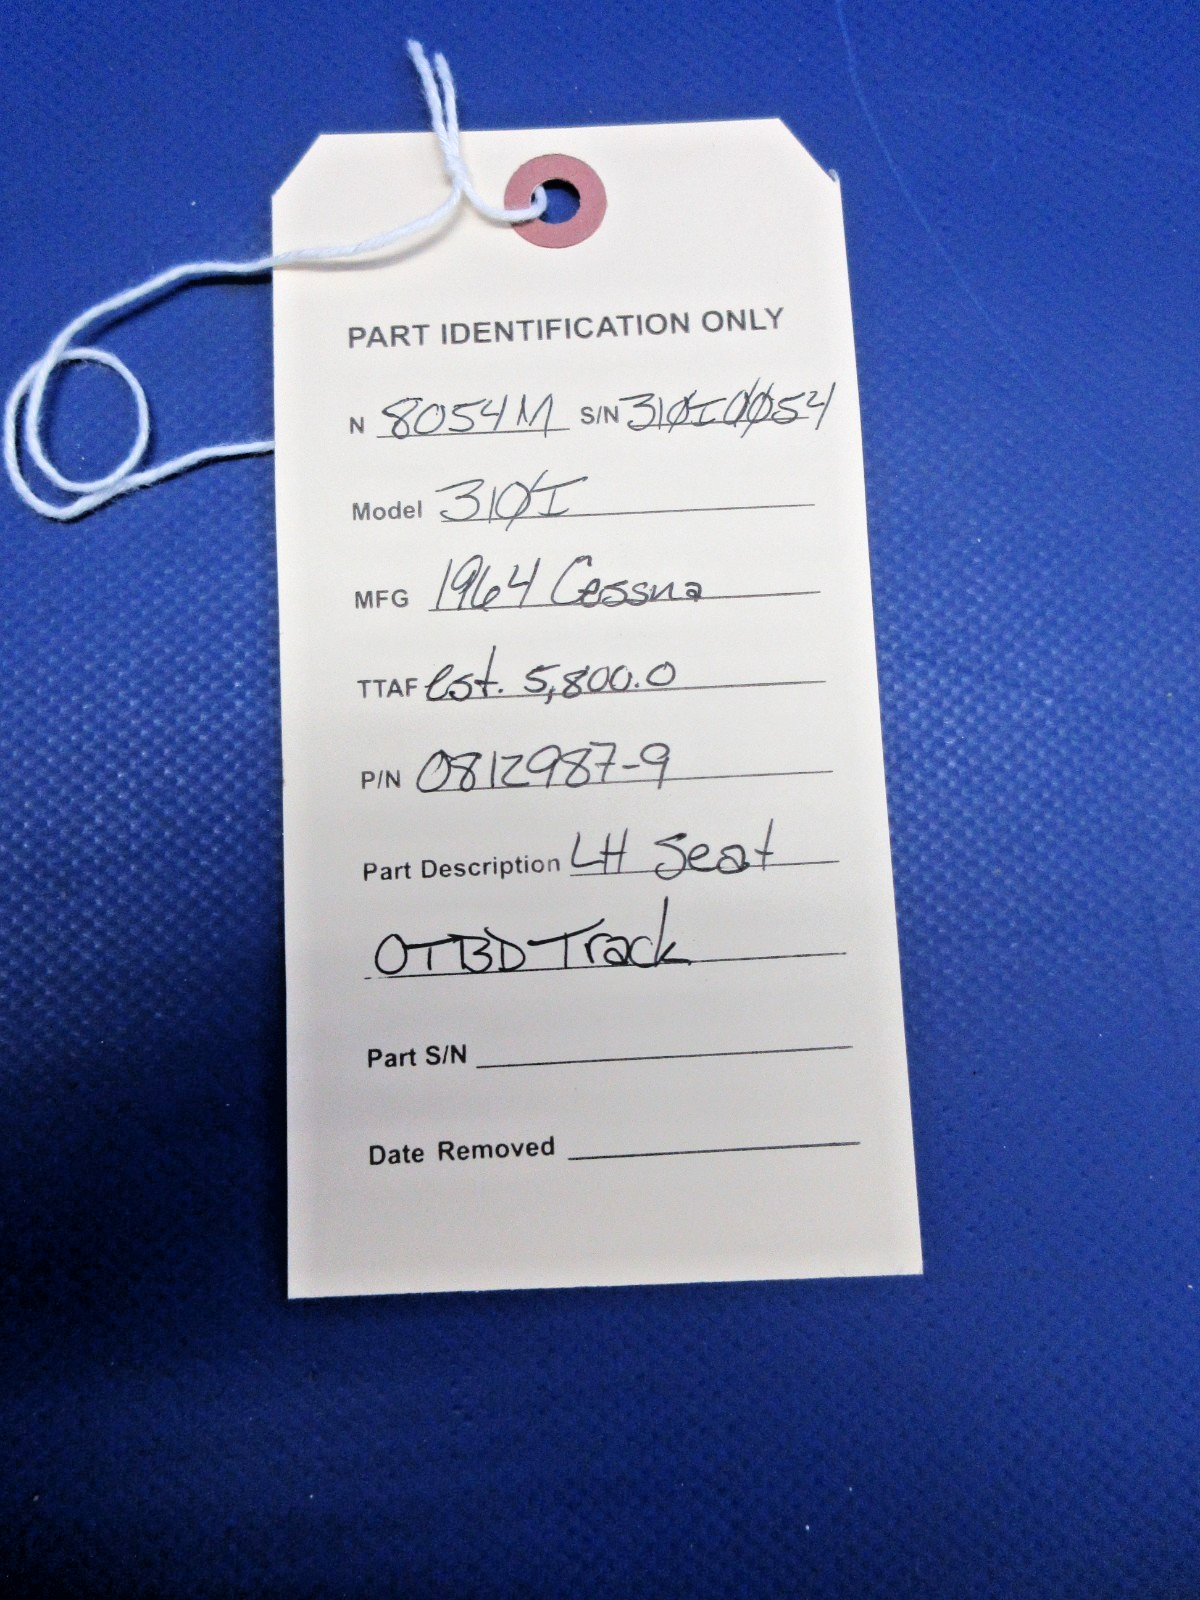 PART IDENTIFICATION ONLY
N 8054M S/N 310I0054
Model 310I
MFG 1964 Cessna
TTAF est. 5,800.0
P/N 0812987-9
Part Description LH Seat
OTBD Track
Part S/N
Date Removed